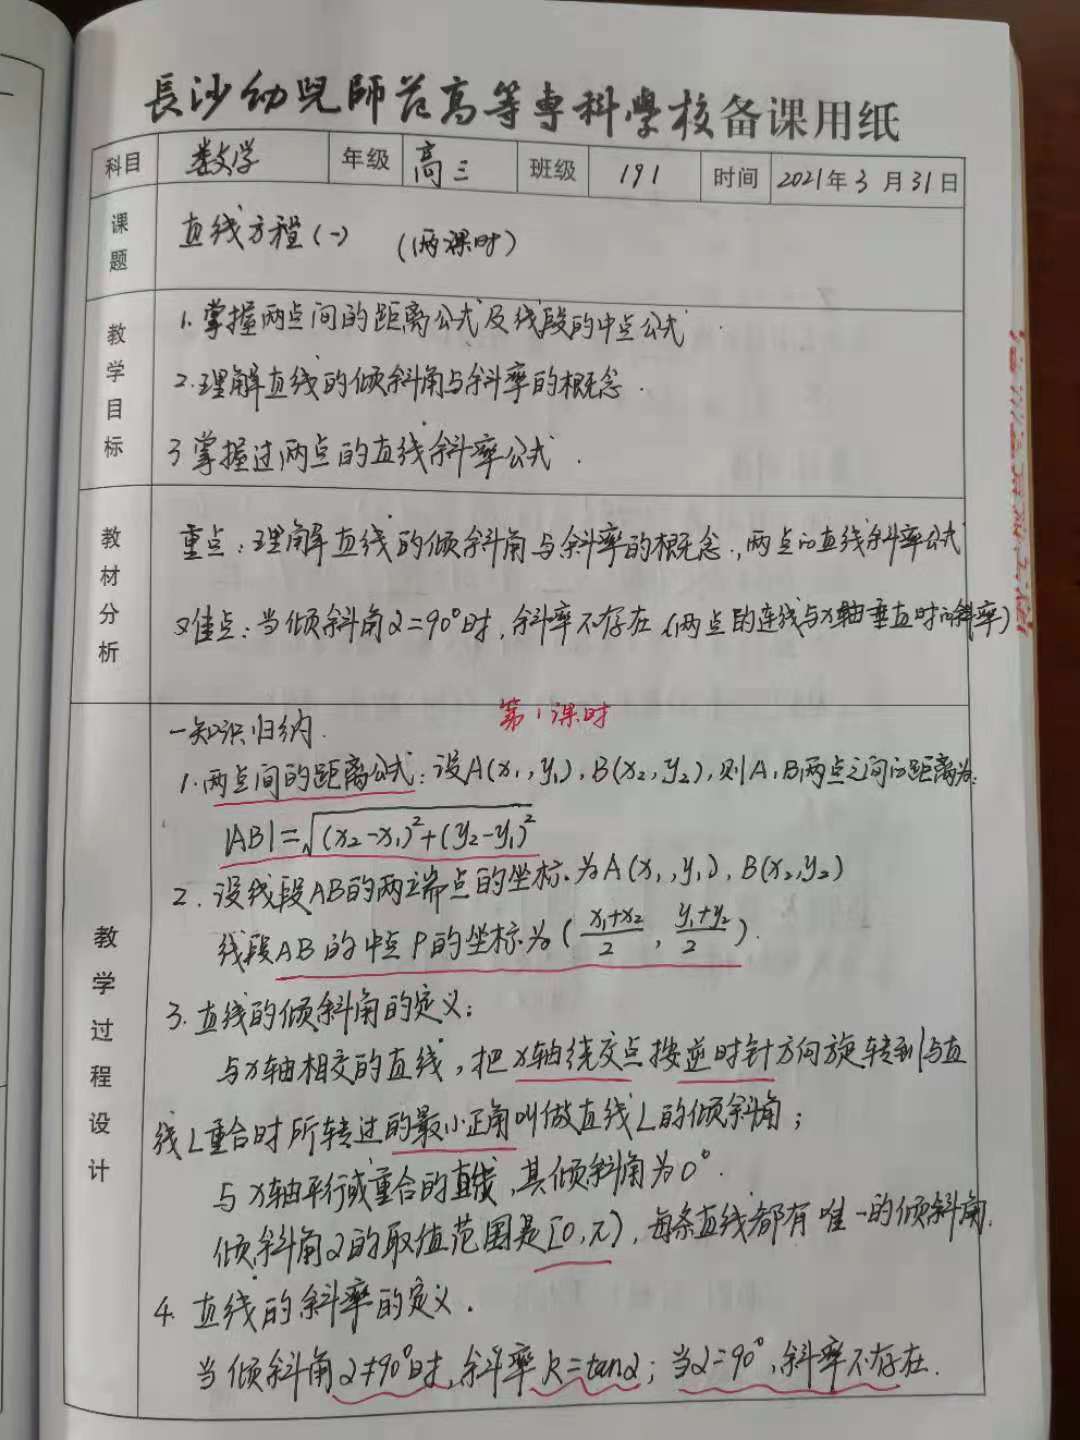 長沙幼兒師范高等專科學校备课用纸
科目 数学 年级 高三 班级 191 时间 2021年3月31日
课题 直线方程(一) (两课时)
教学目标
1.掌握两点间的距离公式及线段的中点公式
2.理解直线的倾斜角与斜率的概念.
3 掌握过两点的直线斜率公式.
教材分析
重点:理解直线的倾斜角与斜率的概念.,两点的直线斜率公式
难点:当倾斜角α=90°时,斜率不存在(两点的连线与x轴垂直时的斜率)
教学过程设计
第1课时
一知识归纳.
1.两点间的距离公式:设A(x₁,y₁),B(x₂,y₂),则A,B两点之间的距离为:
|AB|=√(x₂-x₁)²+(y₂-y₁)²
2.设线段AB的两端点的坐标为A(x₁,y₁),B(x₂,y₂)
线段AB的中点P的坐标为(x₁+x₂/2,y₁+y₂/2).
3.直线的倾斜角的定义:
与x轴相交的直线,把x轴绕交点按逆时针方向旋转到与直
线L重合时所转过的最小正角叫做直线L的倾斜角;
与x轴平行或重合的直线,其倾斜角为0°.
倾斜角α的取值范围是[0,π),每条直线都有唯一的倾斜角.
4.直线的斜率的定义.
当倾斜角α≠90°时,斜率k=tanα;当α=90°,斜率不存在.